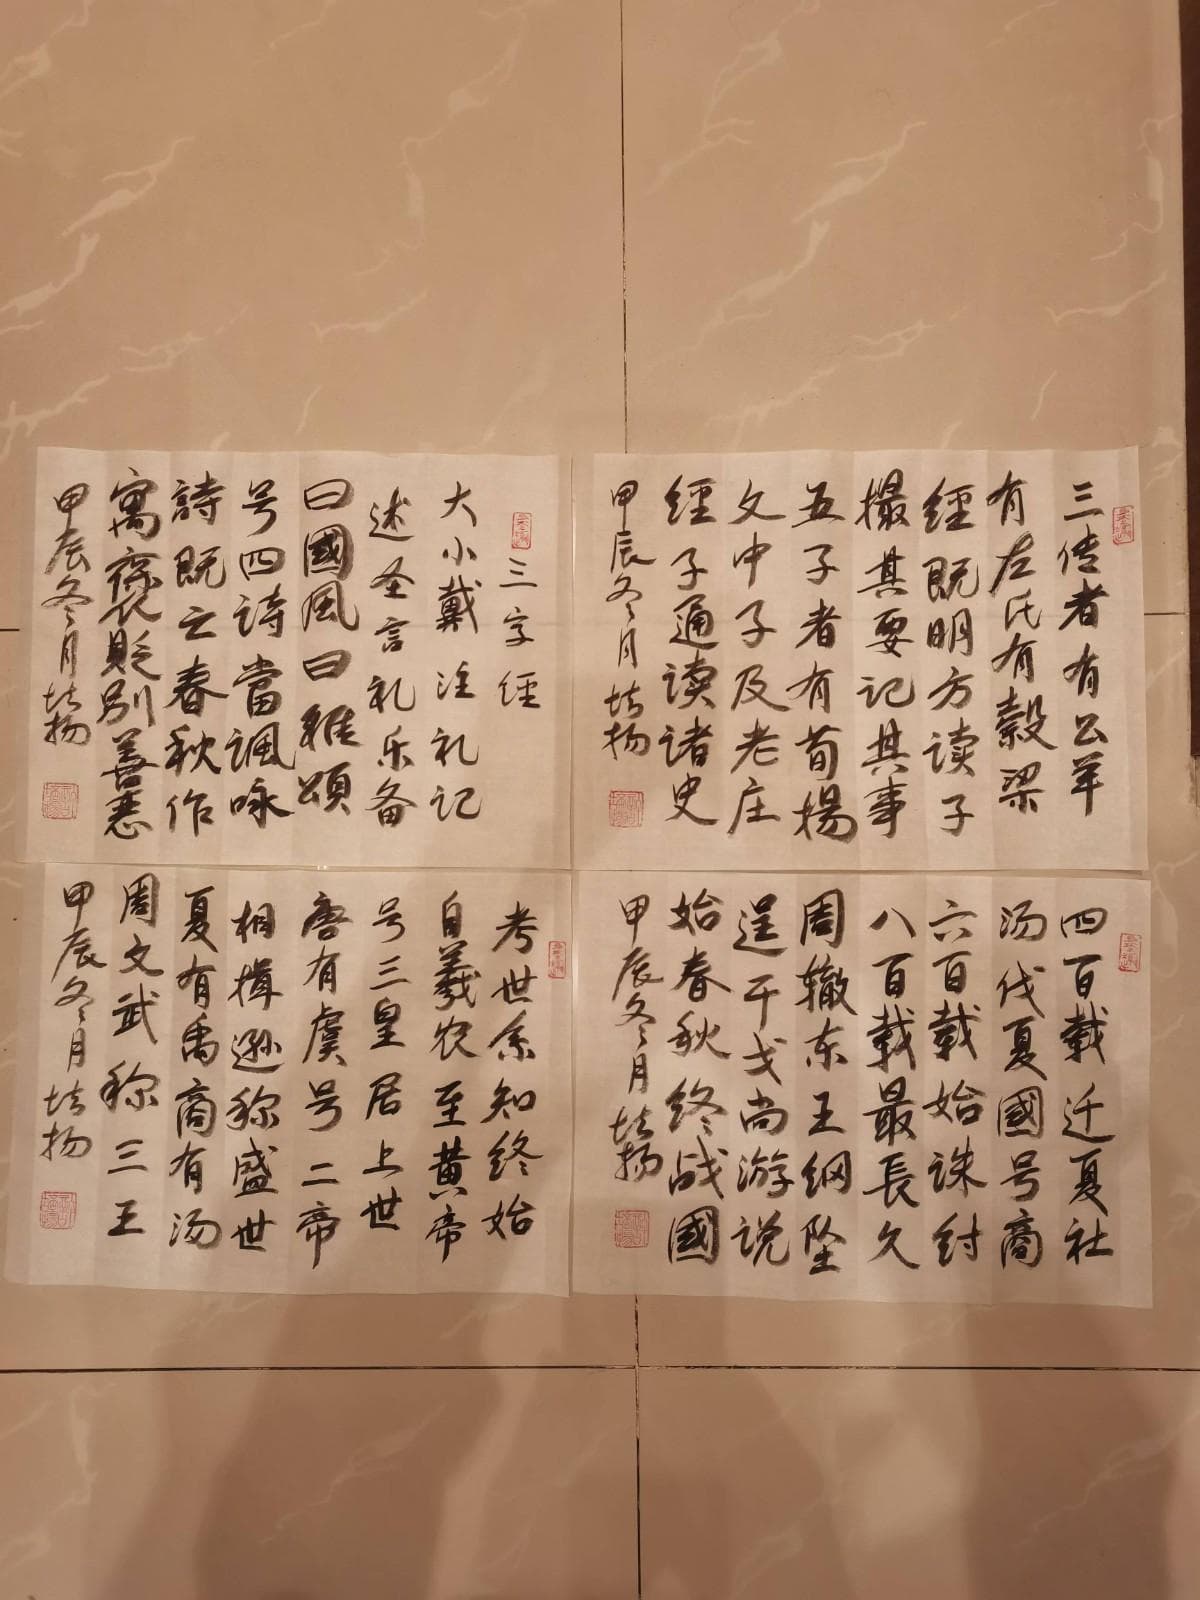 三字經
大小戴注礼记
述圣言礼乐备
曰國风曰雅頌
号四詩當讽咏
詩既亡春秋作
寓褒貶别善惡
甲辰冬月
三传者有公羊
有左氏有穀梁
經既明方读子
撮其要记其事
五子者有荀揚
文中子及老庄
經子通读诸史
甲辰冬月
考世系知终始
自羲农至黄帝
号三皇居上世
唐有虞号二帝
相揖逊称盛世
夏有禹商有汤
周文武称三王
甲辰冬月
四百载迁夏社
汤伐夏國号商
六百载始诛纣
八百载最長久
周辙东王纲坠
逞干戈尚游说
始春秋终战國
甲辰冬月